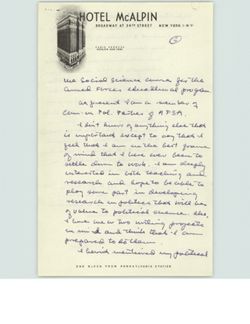 HOTEL McALPIN
BROADWAY AT 34TH STREET NEW YORK 1 N.Y.
the Social Science courses for the
Armed Forces educational program
At present I am a member of
Com. on Pol. Parties of APSA
I don't know of anything else that
is important except to say that I
feel that I am in the best frame
of mind that I have ever been to
settle down to work. I am deeply
interested in both teaching and
research and hope to be able to
play some part in developing
research in politics that will be
of value to political science. Also,
I have one or two writing projects
in mind and think that I am
prepared to do them.
I haven't mentioned my political
ONE BLOCK FROM PENNSYLVANIA STATION